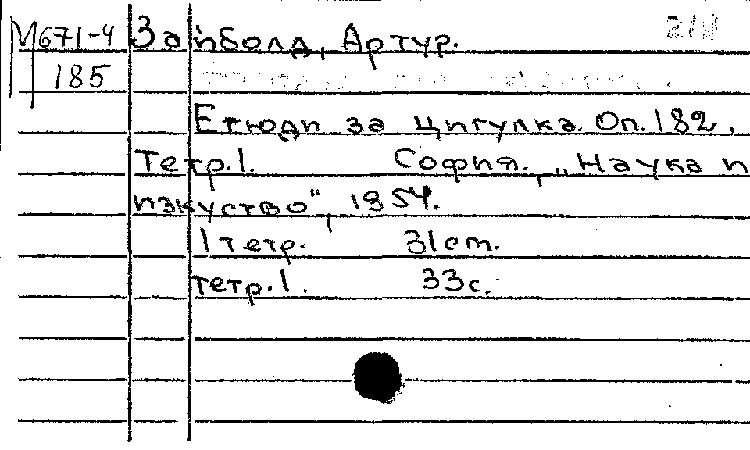 М671-4 Зайболд, Артур.
185
Етюди за цигулка. Оп. 182,
Тетр. 1. София., „Наука и
изкуство", 1954.
1 тетр. 31 cm.
тетр. 1. 33 с.